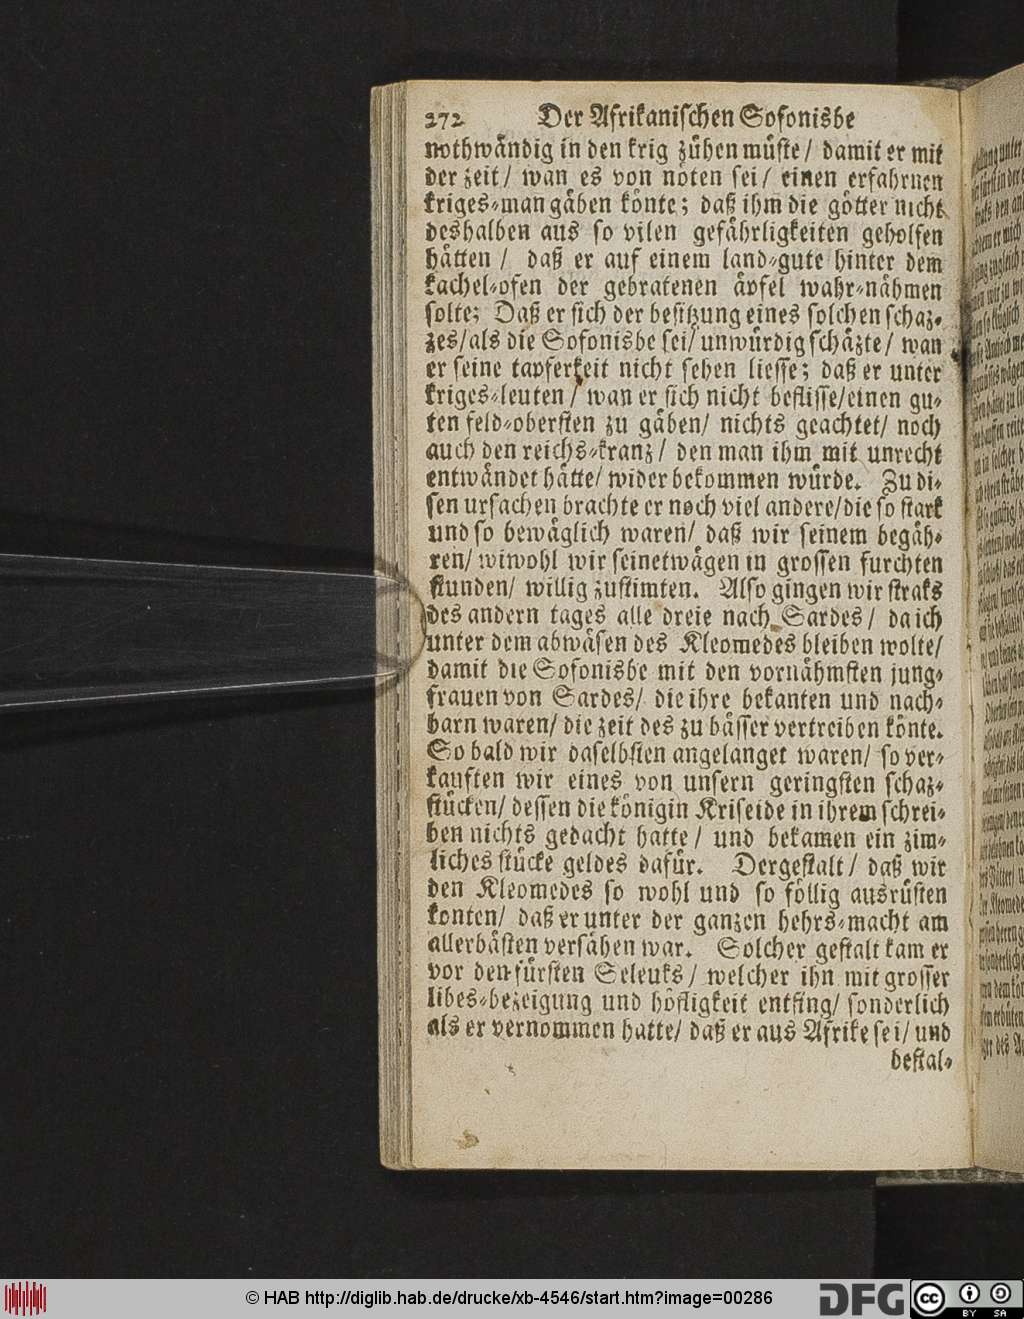 272 Der Afrikanischen Sofonisbe
nothwändig in den krig zühen müste/ damit er mit
der zeit/ wan es von nöten sei/ einen erfahrnen
kriges-man gäben könte; daß ihm die götter nicht
deshalben aus so vilen gefährligkeiten geholfen
hätten / daß er auf einem land-gute hinter dem
kachel-ofen der gebratenen äpfel wahr-nähmen
solte; Daß er sich der besitzung eines solchen schaz-
zes/als die Sofonisbe sei/ unwürdig schäzte/ wan
er seine tapferkeit nicht sehen liesse; daß er unter
kriges-leuten / wan er sich nicht beflisse/einen gu-
ten feld-obersten zu gäben/ nichts geachtet/ noch
auch den reichs-kranz/ den man ihm mit unrecht
entwändet hätte/ wider bekommen würde. Zu di-
sen ursachen brachte er noch viel andere/die so stark
und so bewäglich waren/ daß wir seinem begäh-
ren/ wiwohl wir seinetwägen in grossen furchten
stunden/ willig zustimten. Also gingen wir straks
des andern tages alle dreie nach Sardes/ da ich
unter dem abwäsen des Kleomedes bleiben wolte/
damit die Sofonisbe mit den vornähmsten jung-
frauen von Sardes/ die ihre bekanten und nach-
barn waren/ die zeit des zu bässer vertreiben könte.
So bald wir daselbsten angelanget waren/ so ver-
kauften wir eines von unsern geringsten schaz-
stücken/ dessen die königin Kriseide in ihrem schrei-
ben nichts gedacht hatte/ und bekamen ein zim-
liches stücke geldes dafür. Dergestalt/ daß wir
den Kleomedes so wohl und so föllig ausrüsten
konten/ daß er unter der ganzen hehrs-macht am
allerbästen versähen war. Solcher gestalt kam er
vor den fürsten Seleuks/ welcher ihn mit grosser
libes-bezeigung und höfligkeit entfing/ sonderlich
als er vernommen hatte/ daß er aus Afrike sei/ und
bestal-
© HAB http://diglib.hab.de/drucke/xb-4546/start.htm?image=00286
DFG
cc
BY SA